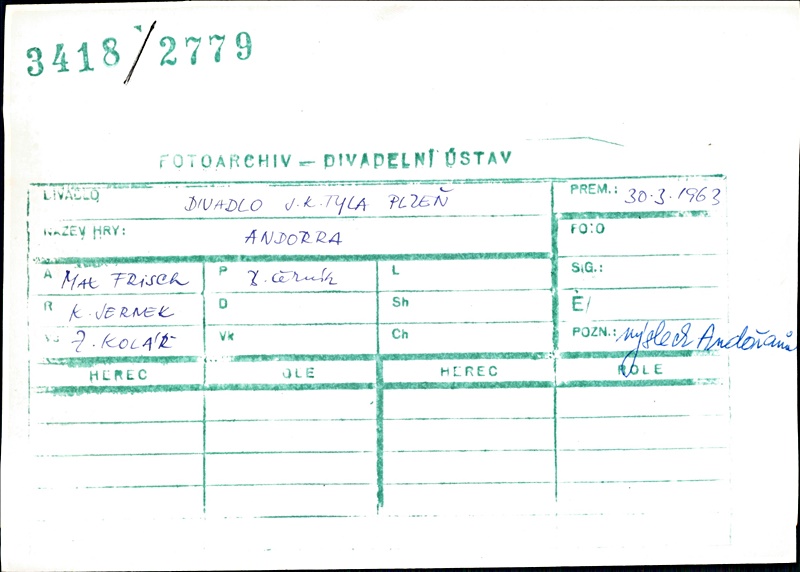 3418/2779
FOTOARCHIV – DIVADELNÍ ÚSTAV
DIVADLO DIVADLO J.K.TYLA PLZEŇ PREM.: 30.3.1963
NÁZEV HRY: ANDORRA FOTO
A MAX FRISCH P L SIG.:
R K. VERNER D Sh Č/
Z. KOLÁŘ Vk Ch POZN.: výslech Andořanů
HEREC OLE HEREC ROLE